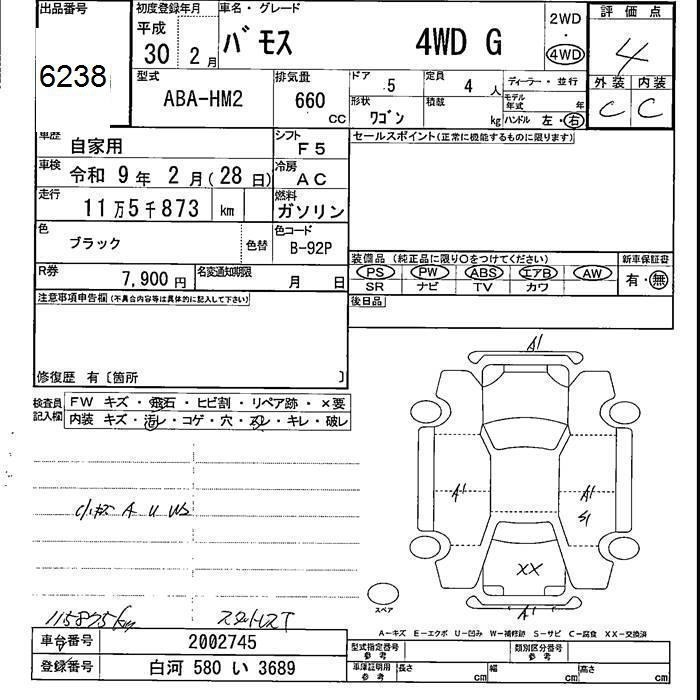 出品番号
6238
初度登録年月
平成
30 2月
車名・グレード
バモス 4WD G
2WD
・
4WD
評価点
4
外装 内装
C C
型式
ABA-HM2
排気量
660
CC
ドア
5
定員
4 人
ディーラー・並行
形状
ワゴン
積載
kg
モデル年式 年
ハンドル 左・右
車歴 自家用
シフト F5
セールスポイント(正常に機能するものに限ります)
車検 令和 9年 2月(28日)
冷房 AC
走行 11万5千873 km
燃料 ガソリン
色 ブラック
色替
色コード B-92P
装備品 (純正品に限り○をつけてください)
新車保証書
PS PW ABS エアB AW
有・無
SR ナビ TV カワ
R券 7,900円
名変通知期限 月 日
後日品
注意事項申告欄(不具合内容等は具体的に記入して下さい)
修復歴 有〔箇所 〕
検査員記入欄
FW キズ・飛石・ヒビ割・リペア跡・×要
内装 キズ・汚レ・コゲ・穴・スレ・キレ・破レ
小キズ A U W2
A1
A1
A1
S1
XX
A1
スペア
115875km
スタットレスT
A-キズ E-エクボ U-凹み W-補修跡 S-サビ C-腐食 XX-交換済
車台番号 2002745
登録番号 白河 580 い 3689
型式指定番号 参考
類別区分番号 参考
車庫証明用 参考
長さ cm
幅 cm
高さ cm